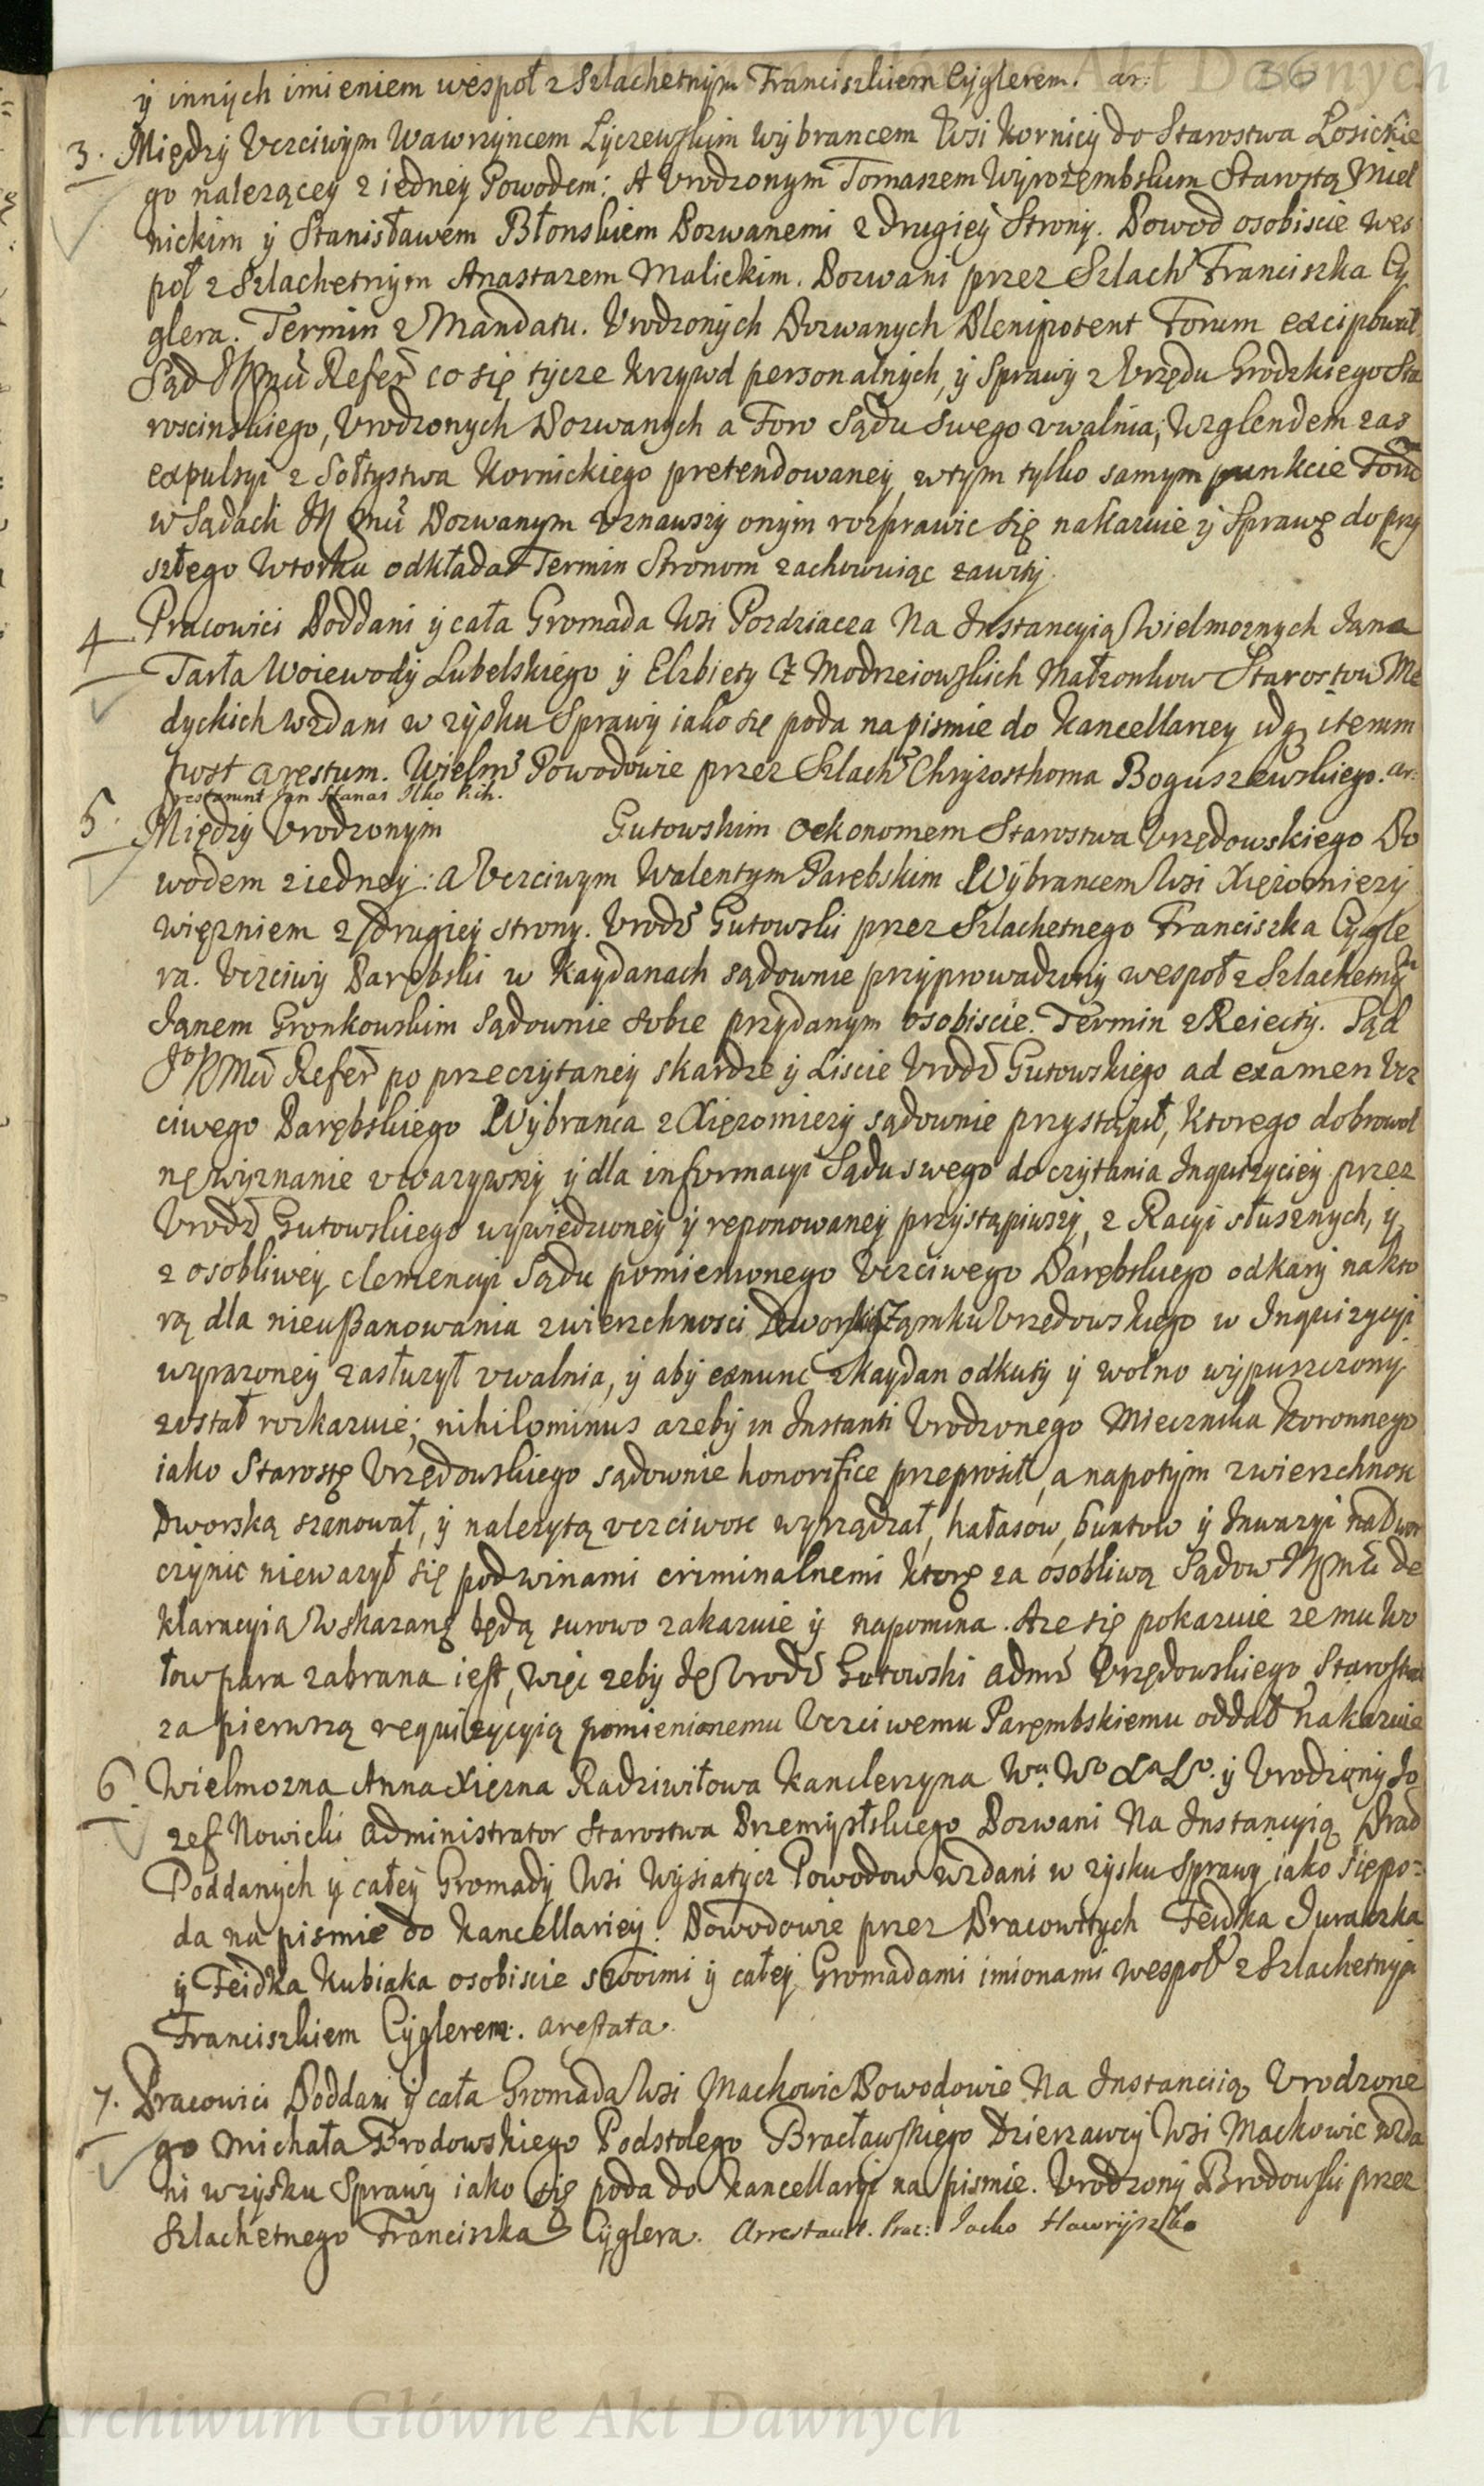 36
ÿ innÿch imieniem wespoł z Szlachetnÿm Franciszkiem Cÿglerem. ar:
3. Międzÿ Vczciwÿm Wawrzÿncem Lÿczewskim Wÿbrancem Wsi Kornicÿ do Starostwa Łosickie
go nalezącey z iedneÿ Powodem: A Vrodzonym Tomaszem Wÿrozembskim Starostą Miel
nickim ÿ Stanisławem Błonskiem Pozwanemi z drugieÿ Stronÿ. Powod osobiscie wes
poł z Szlachetnÿm Anastazem Malickim. Pozwani przez Szlach: Franciszka Cÿ
glera. Termin z Mandatu. Vrodzonÿch Pozwanych Plenipotent Forum excipował.
Sąd JKMci Refer: co się tÿcze krzywd personalnÿch, ÿ Sprawÿ z Vrzędu Grodzkiego Sta
roscinskiego, Vrodzonych Pozwanych a Foro Sądu Swego vwalnia, Wzglendem zas
expulsyi z Sołtystwa Kornickiego pretendowaneÿ, wtÿm tylko samym punkcie Forum
w Sądach JKMci Pozwanym vznawszÿ onÿm rozprawic się nakazuie ÿ Sprawę do przÿ
szłego Wtorku odkłada Termin Stronom zachowuiąc zawitÿ.
4 Pracowici Poddani ÿ cała Gromada Wsi Pozdziacza Na Instancyią Wielmoznych Jana
Tarła Woiewodÿ Lubelskiego ÿ Elzbiety Z Modrzeiowskich Małzonkow Starostow Me
dyckich wzdani w zÿsku Sprawÿ iako się poda na pismie do Kancellaryey idą iterum
post arestum. Wielm: Powodowie przez Szlach: Chrÿzosthoma Boguszewskiego. ar:
restarunt Jan Stanas Ilko Kich.
5. Międzÿ Vrodzonÿm Gutowskim Oekonomem Starostwa Vrzędowskiego Po
wodem z iedneÿ: a Vczciwym Walentym Parębskim Wÿbrancem Wsi Xięzomierzÿ
więzniem z drugieÿ stronÿ. Vrodz: Gutowski przez Szlachetnego Franciszka Cÿgle
ra. Vczciwÿ Parębski w Kaydanach sądownie przÿprowadzonÿ wespoł z Szlachetnÿm
Janem Gronkowskim Sądownie sobie przÿdanym osobiscie. Termin z Reiectÿ. Sąd
JKMci Refer: po przeczÿtaneÿ skardze ÿ Liscie Vrodz: Gutowskiego ad examen Vcz
ciwego Parębskiego Wÿbranca z Xięzomierzÿ sądownie przystąpił, ktorego dobrowol
ne wÿznanie vwazÿwszÿ ÿ dla informacyi Sądu swego do czÿtania Inquizÿcieÿ przez
Vrodz: Gutowskiego wywiedzioneÿ ÿ reponowaneÿ przÿstąpiwszÿ, z Racyi słusznych, ÿ
z osobliweÿ clemencyi Sądu pomienionego Vczciwego Parębskiego od karÿ na kto
rą dla nieuszanowania zwierzchnosci Dworskiey Zamku Vrzędowskiego w Inquizycyi
wyrazoneÿ zasłuzył vwalnia, ÿ abÿ exnunc z Kaydan odkutÿ ÿ wolno wÿpuszczonÿ
został rozkazuie; nihilominus azebÿ in Instanti Vrodzonego Miecznika Koronnego
iako Starostę Vrzędowskiego sądownie honorifice przeprosił, a napotÿm zwierzchnosc
Dworską szanował, ÿ nalezytą vczciwosc wyrządzał, hałasow, buntow ÿ Inwazyi na Dwor
czÿnic niewazył się pod winami criminalnemi ktorę za osobliwą Sądow JKMci de
klaracyią Wskazanę będą surowo zakazuie ÿ napomina. Aze się pokazuie ze mu Wo
łow para zabrana iest, więc zebÿ ię Vrodz: Gutowski Admr: Vrzędowskiego Starostwa
za pierwszą requizycyią pomienionemu Vczciwemu Parembskiemu oddał nakazuie
6. Wielmozna Anna Xięzna Radziwiłowa Kanclerzyna Wa. Wo XaLo. ÿ Vrodzonÿ Jo
zef Nowicki Administrator Starostwa Przemÿslskiego Pozwani Na Instancyią Prac
Poddanych ÿ całeÿ Gromadÿ Wsi Wÿsiatÿcz Powodow wzdani w zÿsku Sprawÿ iako się po:
da na pismie do Kancellarieÿ. Powodowie przez Pracowitych Fedka Juraszka
ÿ Feidka Kubiaka osobiscie swoimi ÿ całeÿ Gromadami imionami wespoł z Szlachetnÿm
Franciszkiem Cÿglerem. arestata.
7. Pracowici Poddani ÿ cała Gromada Wsi Mackowic Powodowie Na Instanciią Vrodzone
go Michała Brodowskiego Podstolego Bracławskiego Dzierzawcÿ Wsi Mackowic wzda
ni w zÿsku Sprawÿ iako się poda do Kancellaryi na pismie. Vrodzonÿ Brodowski przez
Szlachetnego Franciszka Cÿglera. Arrestavit. Prac: Jacko Hawrÿszko
Archiwum Główne Akt Dawnych